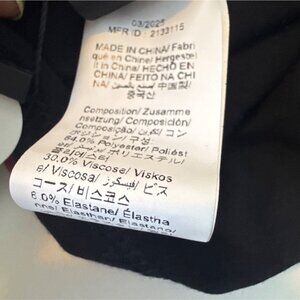 03/2025
MFR ID: 2133115
MADE IN CHINA/Fabri
qué en Chine/Hergestel
lt in China/HECHO EN
CHINA/FEITO NA CHI
NA/صنع بالصين/中国製/
중국산
Composition/Zusamme
nsetzung/Composición/
Composição/コン
ポジション/구성
64.0% Polyester/Poliést
er/ポリエステル/
폴리에스터
30.0% Viscose/Viskos
e/Viscosa/فيسكوز/ビス
コース/비스코스
6.0% Elastane/Élastha
nne/Elasthan/Elastano